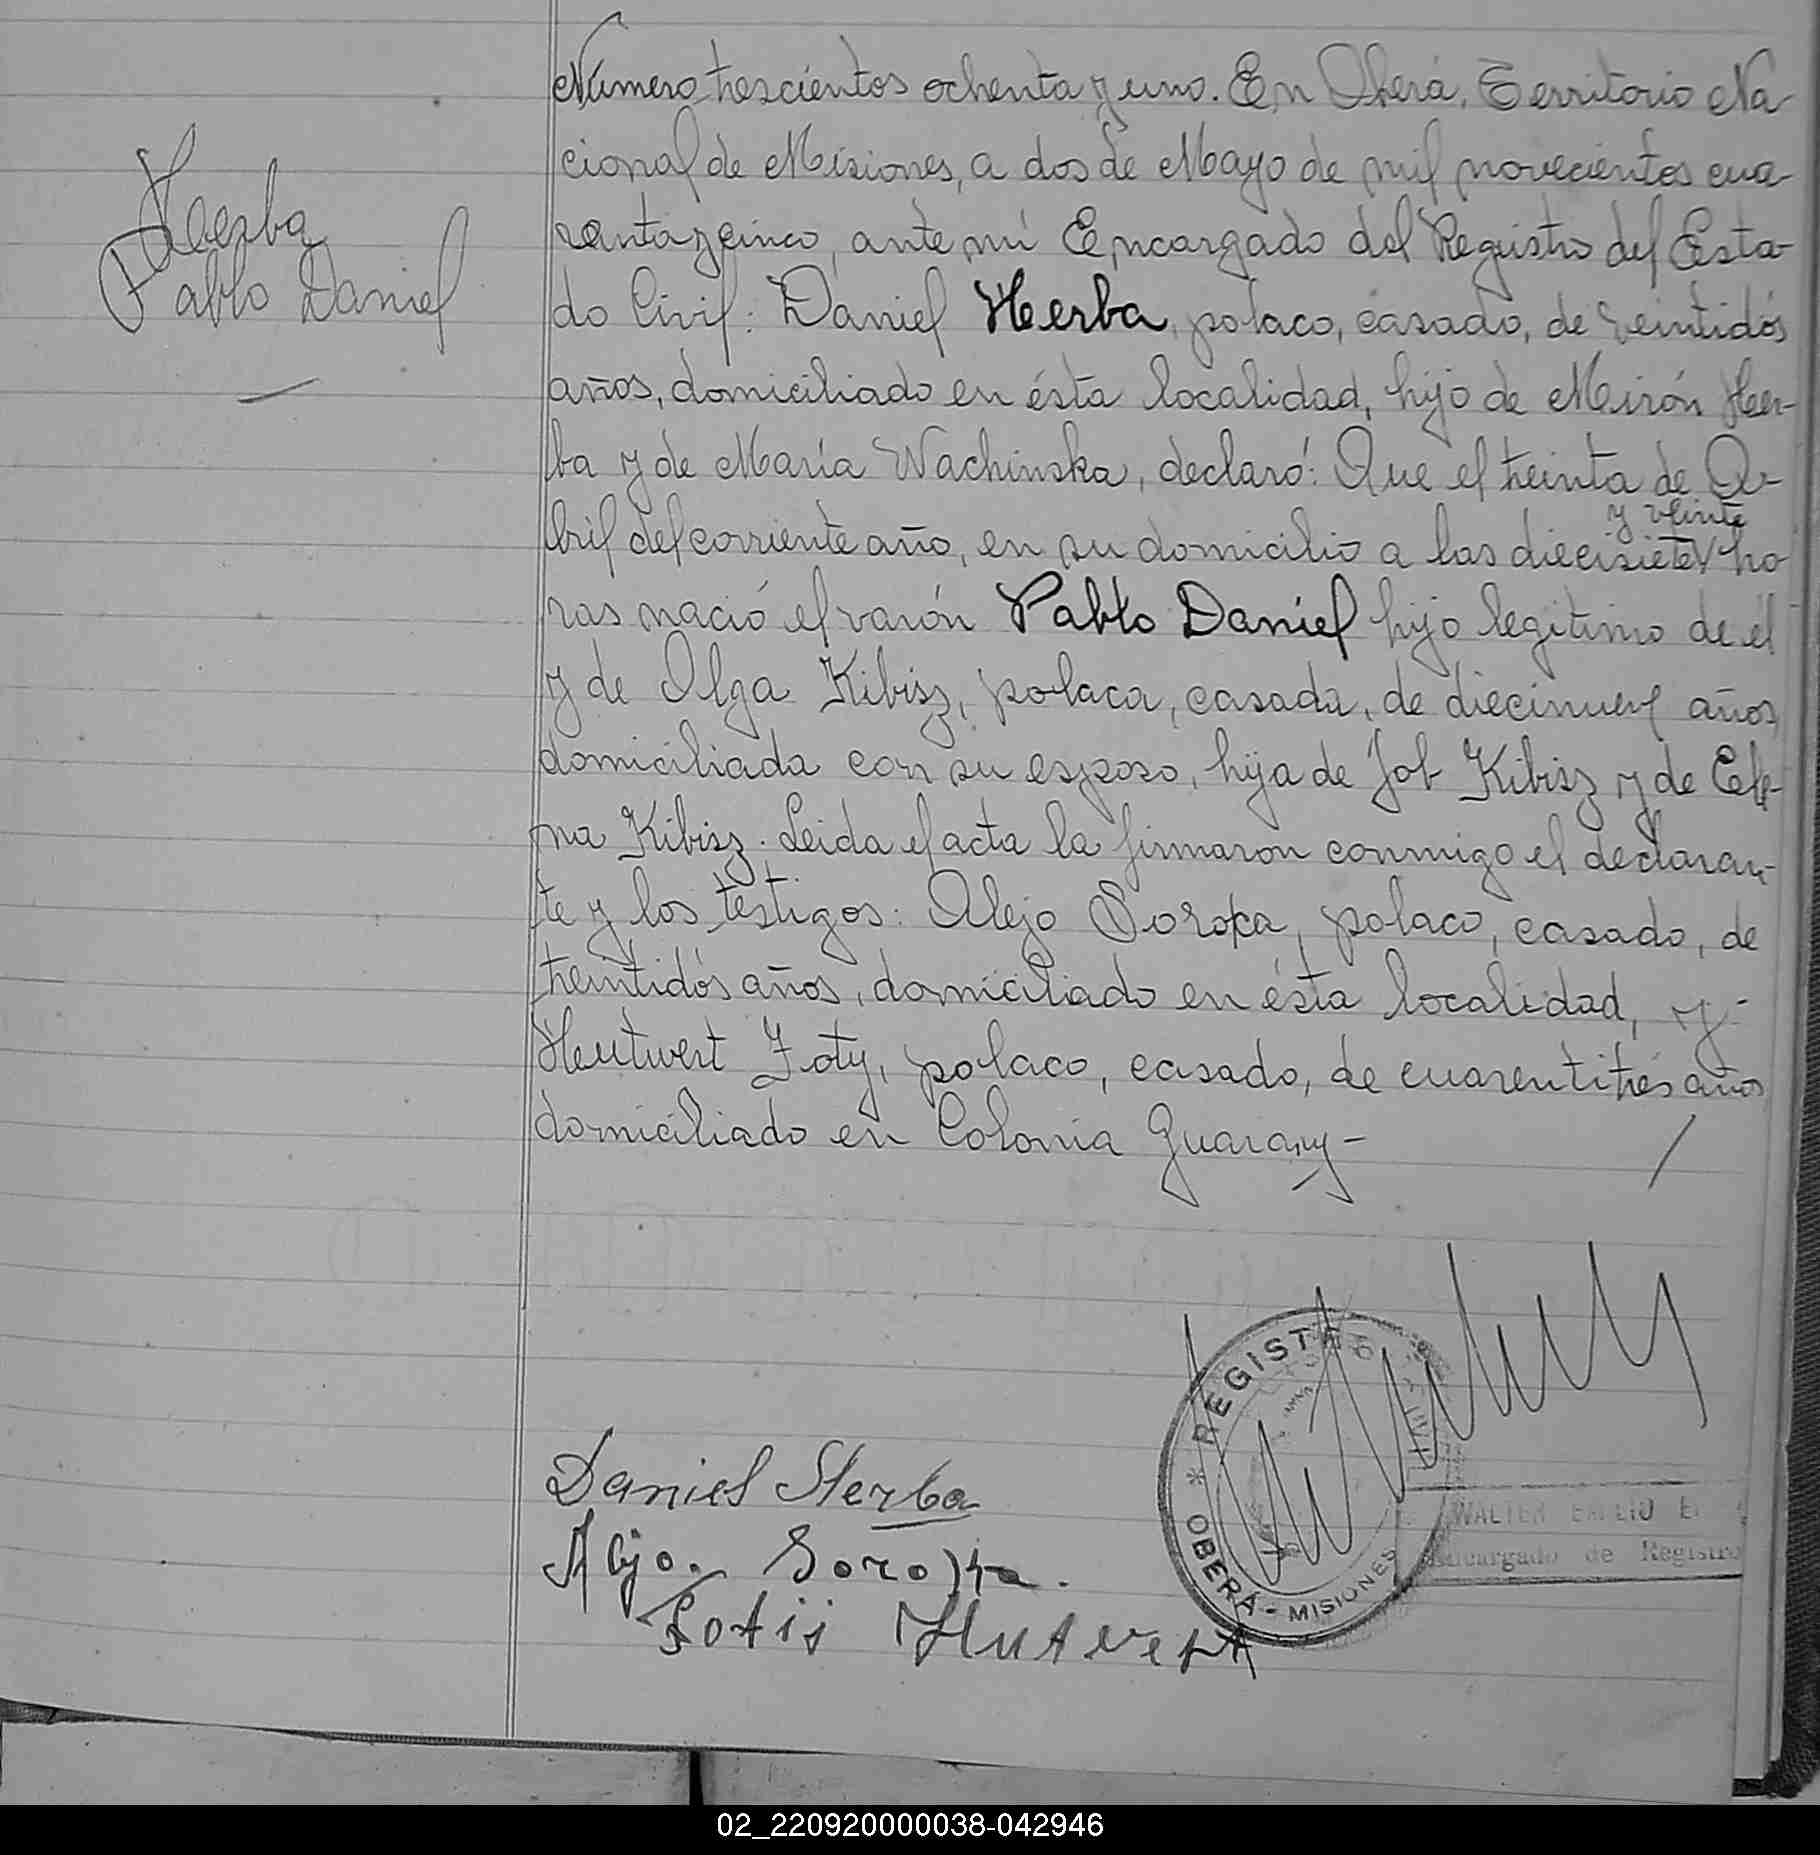 Herba
Pablo Daniel
Número trescientos ochenta y uno. En Oberá, Territorio Na-
cional de Misiones, a dos de Mayo de mil novecientos cua-
renta y cinco, ante mí Encargado del Registro del Esta-
do Civil: Daniel Herba, polaco, casado, de veintidós
años, domiciliado en ésta localidad, hijo de Meirón Her-
ba y de María Wachinska, declaró: Que el treinta de A-
bril del corriente año, en su domicilio a las diecisiete y veinte ho-
ras nació el varón Pablo Daniel hijo legítimo de él
y de Olga Kibisz, polaca, casada, de diecinueve años
domiciliada con su esposo, hija de Job Kibisz y de Ele-
na Kibisz. Leida el acta la firmaron conmigo el declaran-
te y los testigos: Alejo Soroka, polaco, casado, de
treintidós años, domiciliado en ésta localidad, y-
Hutwert Foty, polaco, casado, de cuarentitrés años
domiciliado en Colonia Guarany-
Daniel Herba
Alejo. Soroka.
Fotij Hutvert
REGISTR
OBERÁ - MISIONES
WALTER EMILIO
Encargado de Registro
02_220920000038-042946